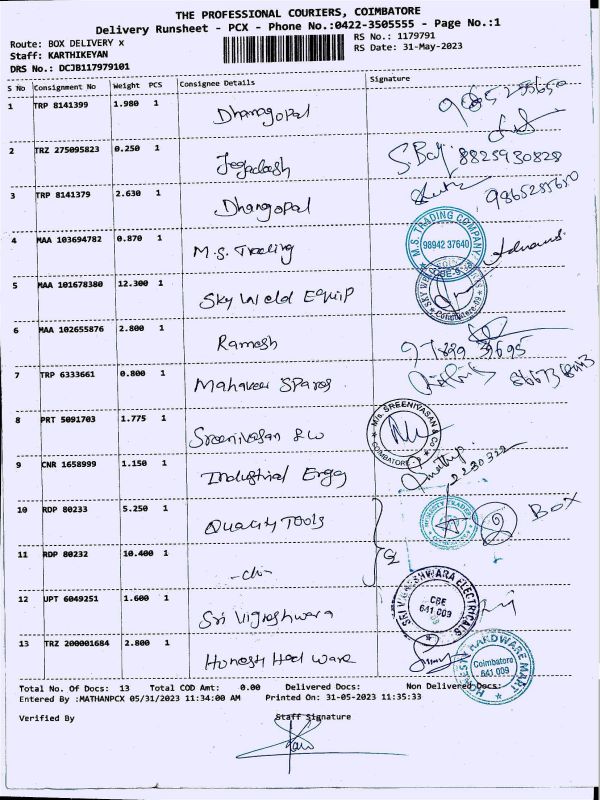 THE PROFESSIONAL COURIERS, COIMBATORE
Delivery Runsheet - PCX - Phone No.:0422-3505555 - Page No.:1
Route: BOX DELIVERY x
RS No.: 1179791
Staff: KARTHIKEYAN
RS Date: 31-May-2023
DRS No.: DCJB117979101
S No Consignment No Weight PCS Consignee Details Signature
1 TRP 8141399 1.980 1 Dhanagopal
2 TRZ 275095823 0.250 1 Jegadeesh S.Baj 8825930828
3 TRP 8141379 2.630 1 Dhangopal 9865255650
4 MAA 103694782 0.870 1 M.S. Trading
M.S. TRADING COMPANY
98942 37640
5 MAA 101678380 12.300 1 Sky Weld Equip
6 MAA 102655876 2.800 1 Ramesh
7 TRP 6333661 0.800 1 Mahaveer Spares
8 PRT 5091703 1.775 1 Sreenivasan & co
M/s. SREENIVASAN & Co
COIMBATORE
9 CNR 1658999 1.150 1 Industrial Engg
10 RDP 80233 5.250 1 Quality Tools BOX
11 RDP 80232 10.400 1 -do-
12 UPT 6049251 1.600 1 Sri Vigneshwara
SRI VIGNESHWARA ELECTRICALS
CBE
641 009
13 TRZ 200001684 2.800 1 Honesty Hardware
HARDWARE MART
Coimbatore
641 009
Total No. Of Docs: 13 Total COD Amt: 0.00 Delivered Docs: Non Delivered Docs:
Entered By :MATHANPCX 05/31/2023 11:34:00 AM Printed On: 31-05-2023 11:35:33
Verified By Staff Signature